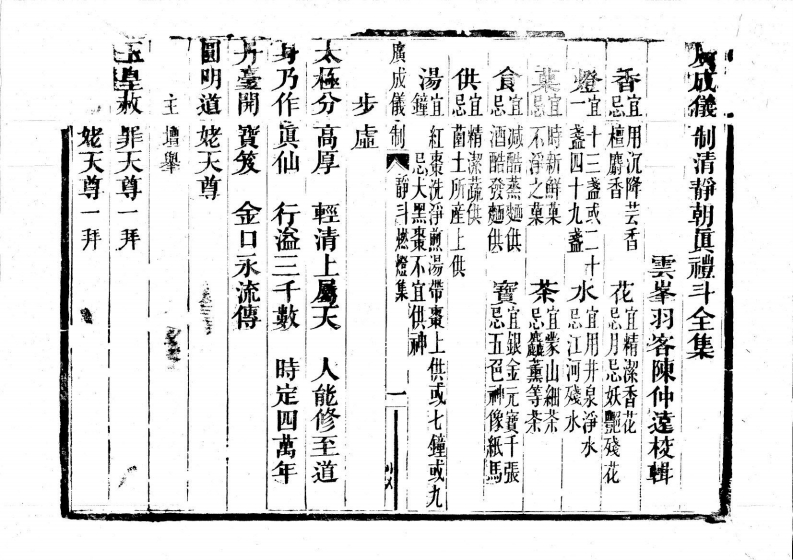 廣成儀制清靜朝眞禮斗全集
雲峯羽客陳仲遠校輯
香 宜用沉降芸香 忌檀麝香 花 宜精潔香花 忌月忌妖艷殘花
燈 宜十三盞或二十一盞四十九盞 水 宜用井泉淨水 忌江河殘水
菓 宜時新鮮菓 忌不淨之菓 茶 宜蒙山細茶 忌薰等茶
食 宜減酷蒸麵供 忌酒酷發麵供 寶 宜銀金元寶千張 忌五色神像紙馬
供 宜精潔蔬供 忌菌土所産上供
湯 宜紅棗洗淨煎湯帶棗上供或七鐘或九鐘 忌大黑棗不宜供神
廣成儀制 靜斗燃燈集 一
步虛
太極分高厚 輕清上屬天 人能修至道
身乃作眞仙 行溢三千數 時定四萬年
丹臺開寶笈 金口永流傳
圓明道姥天尊
主壇舉
玉皇赦罪天尊一拜
姥天尊一拜